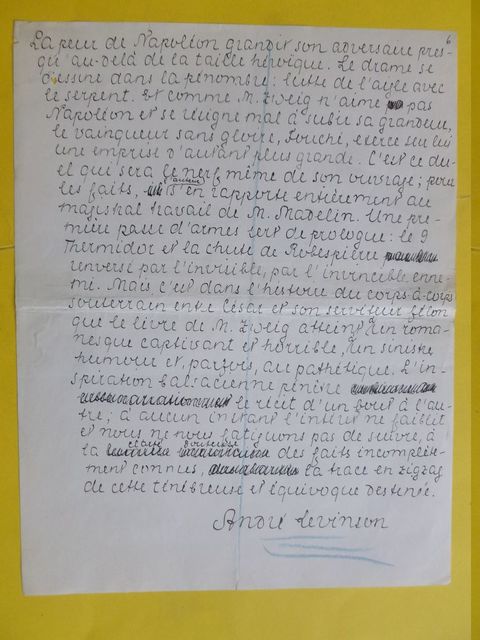 6
La peur de Napoléon grandit son adversaire pres-
qu'au-delà de la taille héroïque. Le drame se
dessine dans la pénombre: lutte de l'aigle avec
le serpent. Et comme M. Zweig n'aime pas
Napoléon et se résigne mal à subir sa grandeur,
le vainqueur sans gloire, Fouché, exerce sur lui
une emprise d'autant plus grande. C'est ce du-
el qui sera le nerf même de son ouvrage; pour
les faits, l'auteur s'en rapporte entièrement au
magistral travail de M. Madelin. Une pre-
mière passe d'armes sert de prologue: le 9
Thermidor et la chute de Robespierre
renversé par l'invisible, par l'invincible enne-
mi. Mais c'est dans l'histoire du corps-à-corps
souterrain entre César et son serviteur félon
que le livre de M. Zweig atteint à un roma-
nesque captivant et horrible, à un sinistre
humour et, parfois, au pathétique. L'in-
spiration balzacienne pénètre
le récit d'un bout à l'au-
tre; à aucun instant l'intérêt ne faiblit
et nous ne nous fatiguons pas de suivre, à
la clarté douteuse des faits incomplète-
ment connus, la trace en zigzag
de cette ténébreuse et équivoque destinée.
André Levinson